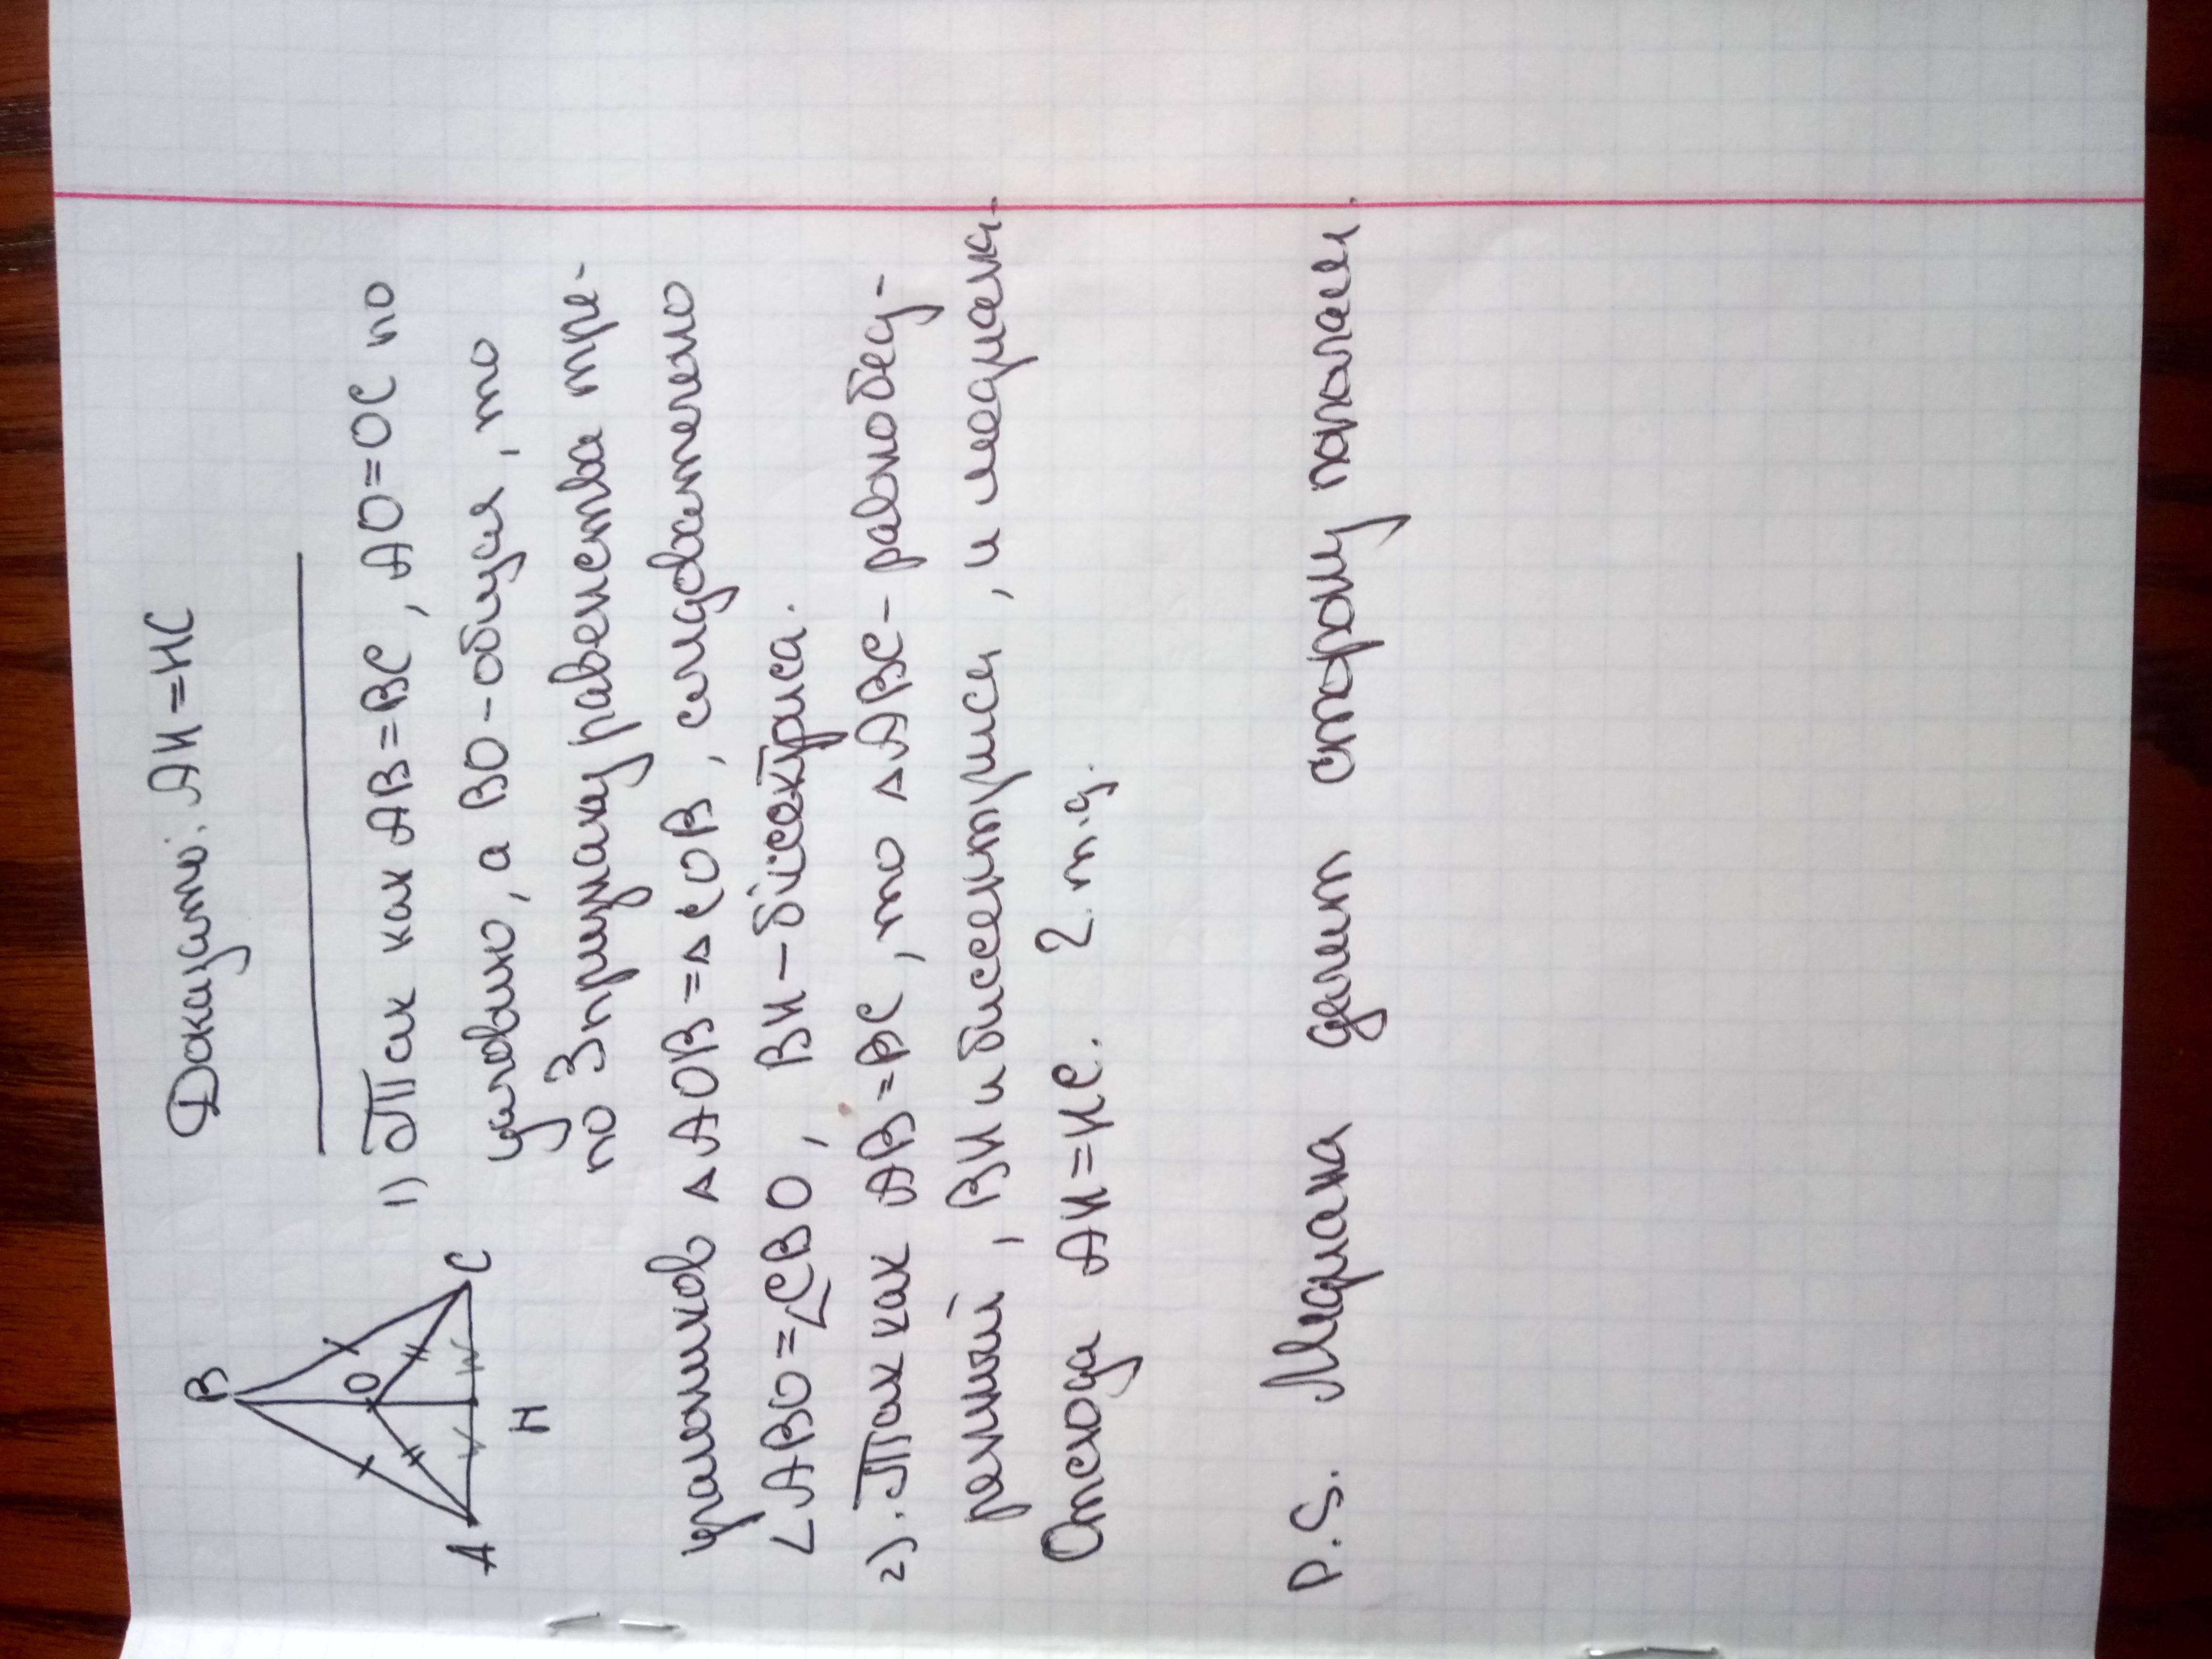 Доказать: AH=HC
B
O
A
C
H
1) Так как AB=BC, AO=OC по
условию, а BO-общая, то
по 3 признаку равенства тре-
угольников △AOB=△COB, следователено
∠ABO=∠CBO, BH-биссектриса.
2). Так как AB=BC, то △ABC-равнобед-
ренный, BH и биссектриса, и медиана.
Отсюда AH=HC. Ч.т.д.
P.S. Медиана делит сторону пополам.